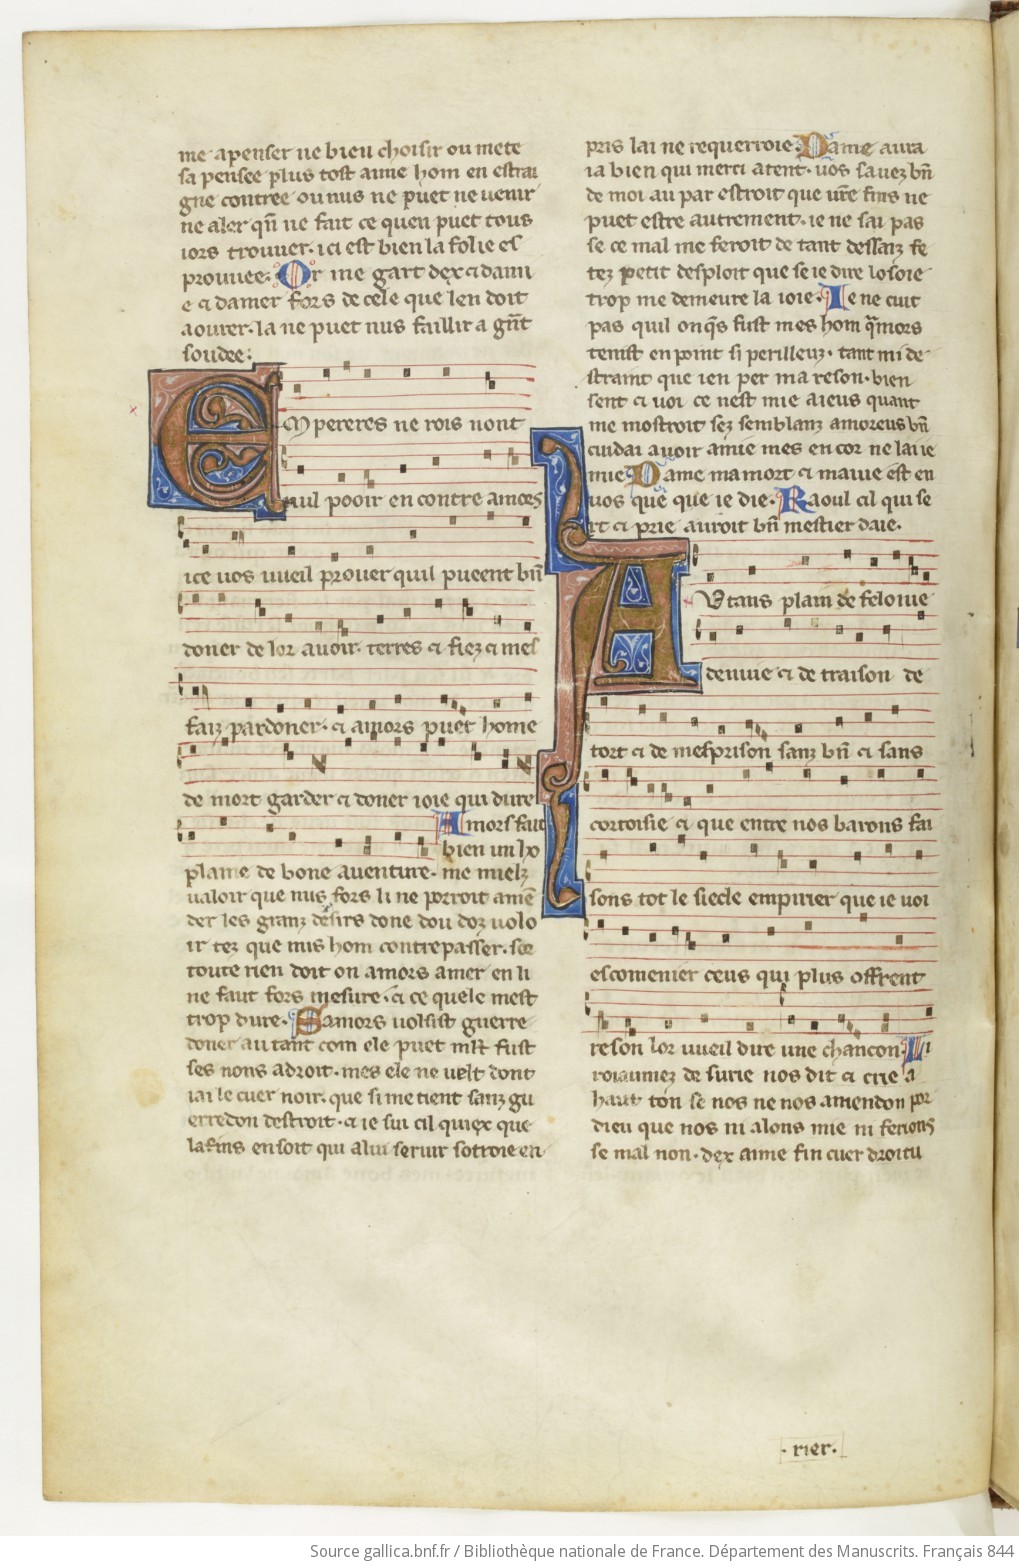 me apenser ne bien choisir ou mete
sa pensee plus tost aime hom en estran
gne contree ou nus ne puet ne uenir
ne aler qñ ne fait ce quen puet tous
iors trouuer. ici est bien la folie es
prouuee. Or me gart dex ⁊ daun
e ⁊ damer fors de cele que len doit
aourer. la ne puet nus faillir a gñt
soudee.
Empereres ne rois nont
nul pooir en contre amors
ice uos uueil prouer quil pueent bñ
doner de lor auoir. terres ⁊ fiez ⁊ mes
faiz pardoner. ⁊ amors puet home
de mort garder ⁊ doner ioie qui dure
Amors fait
bien un ho
plaine de bone auenture. me mielz
ualoir que nus fors li ne porroit amē
der les granz desirs done dou doz uolo
ir tez que nus hom contrepasser. sor
toute rien doit on amors amer en li
ne faut fors mesure. ⁊ ce quele mest
trop dure. Samors uolsist guerre
doner autant com ele puet mlt fust
ses nons adroit. mes ele ne uelt dont
iai le cuer noir. que si me tient sanz gu
erredon destroit. ⁊ ie sui cil quiex que
la fins en soit qui a lui seruir sotroie en
pris lai ne requerroie. Dame aura
ia bien qui merci atent. uos sauez bñ
de moi au par estroit que ure fins ne
puet estre autrement. ie ne sai pas
se ce mal me feroit de tant dessaiz fe
tez petit desploit que se ie dire losoie
trop me demeure la ioie. Ie ne cuit
pas quil onqs fust mes hom qamors
tenist en point si perilleuz. tant mi de
straint que ien per ma reson. bien
sent ⁊ uoi ce nest mie a ieus quant
me mostroit sez semblanz amoreus bñ
cuidai auoir amie mes encor ne lai ie
mie. Dame ma mort ⁊ ma uie est en
uos que que ie die. Raoul cil qui se
rt ⁊ prie auroit bñ mestier daie.
Autans plain de felonie
denuie ⁊ de traison de
tort ⁊ de mesprison sanz bñ ⁊ sans
cortoisie ⁊ que entre nos barons fai
sons tot le siecle empirier que ie uoi
escomenier ceus qui plus offrent
reson lor uueil dire une chancon. Li
roiaumez de surie nos dit ⁊ crie a
haut ton se nos ne nos amendon por
dieu que nos ni alons mie ni ferions
se mal non. dex aime fin cuer droitu
. rier.
Source gallica.bnf.fr / Bibliothèque nationale de France. Département des Manuscrits. Français 844